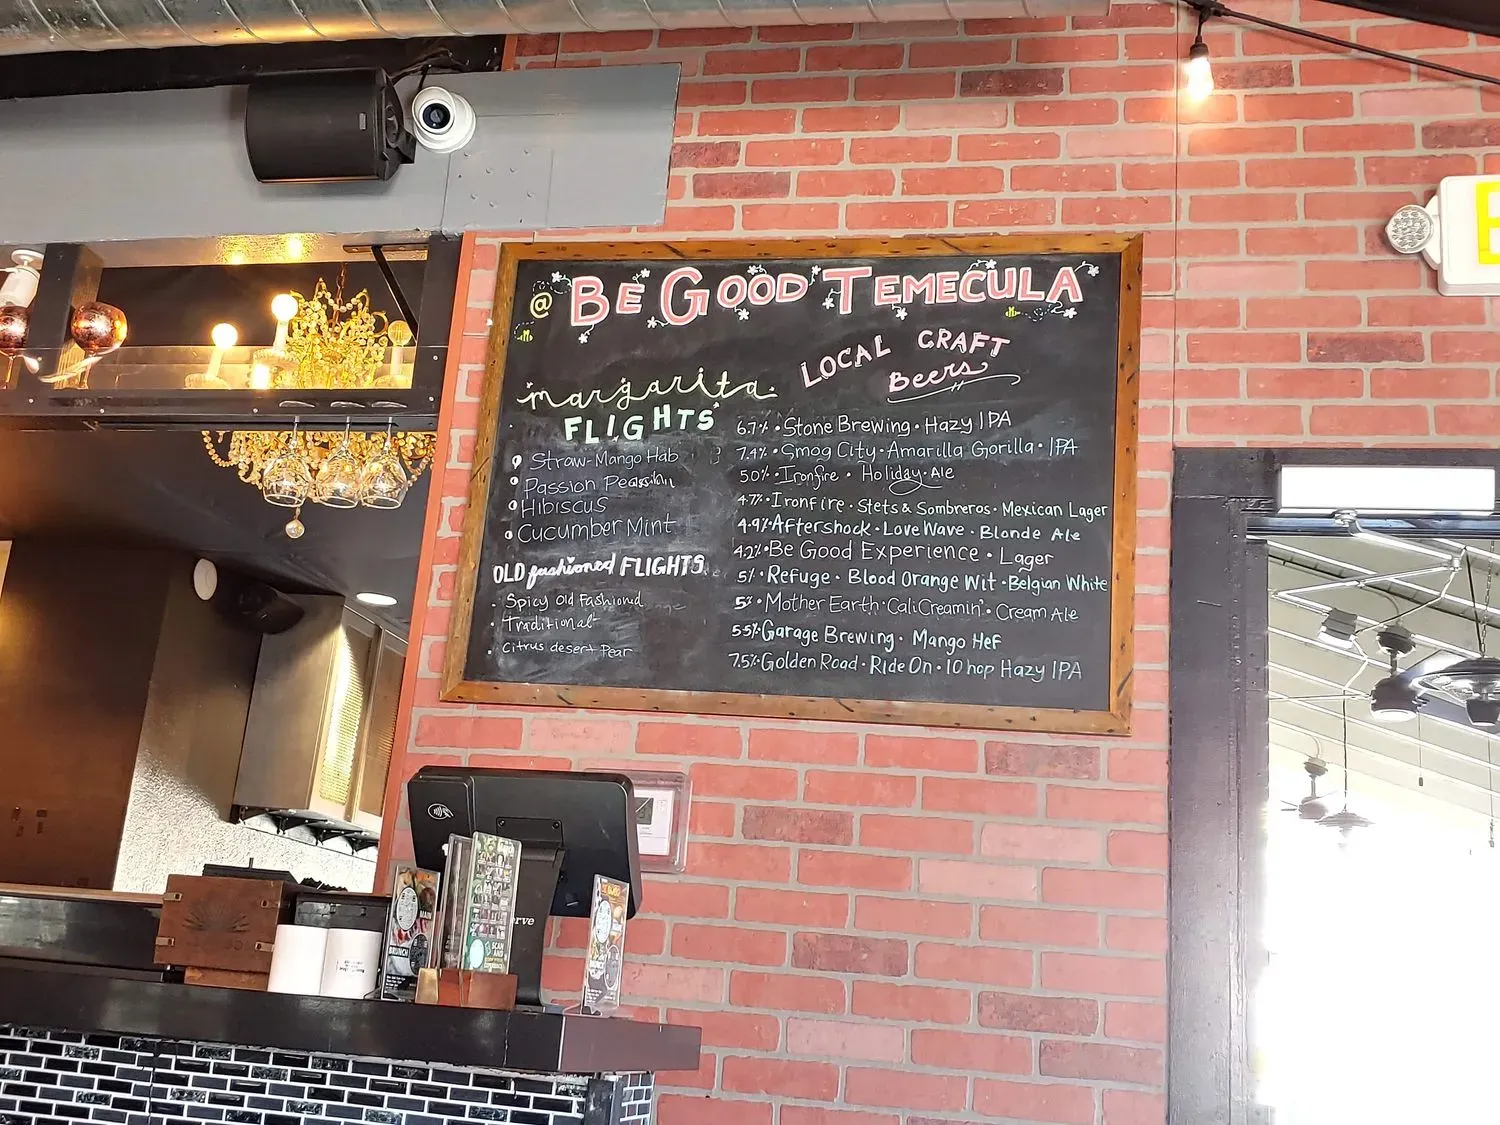 @ BE GOOD TEMECULA
margarita
FLIGHTS
Straw-Mango Hab
Passion
Hibiscus
Cucumber Mint
OLD fashioned FLIGHTS
Spicy Old Fashioned
Traditional
Citrus desert Pear
LOCAL CRAFT
Beers
6.7% • Stone Brewing • Hazy IPA
7.4% • Smog City • Amarilla Gorilla • IPA
50% • Ironfire • Holiday • Ale
4.7% • Ironfire • Stets & Sombreros • Mexican Lager
4.9% • Aftershock • Love Wave • Blonde Ale
4.2% • Be Good Experience • Lager
5% • Refuge • Blood Orange Wit • Belgian White
5% • Mother Earth • Cali Creamin' • Cream Ale
5.5% • Garage Brewing • Mango Hef
7.5% • Golden Road • Ride On • 10 hop Hazy IPA
MAIN
BRUNCH
SCAN
AND